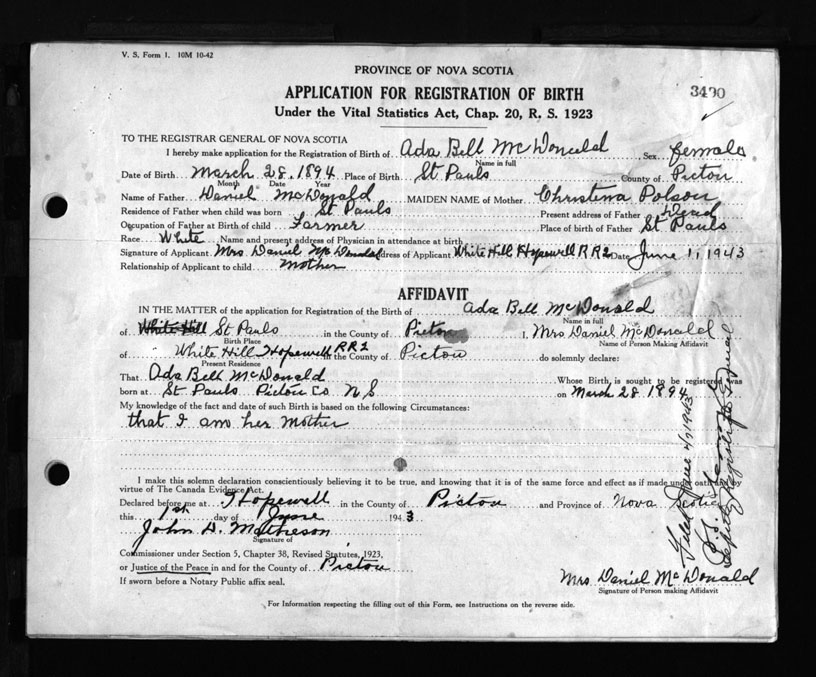 V. S. Form 1. 10M 10-42
PROVINCE OF NOVA SCOTIA
APPLICATION FOR REGISTRATION OF BIRTH
3490
Under the Vital Statistics Act, Chap. 20, R. S. 1923
TO THE REGISTRAR GENERAL OF NOVA SCOTIA
I hereby make application for the Registration of Birth of Ada Bell McDonald, Sex female
Name in full
Date of Birth March 28. 1894 Place of Birth St Pauls County of Pictou
Month Date Year
Name of Father Daniel McDonald MAIDEN NAME of Mother Christena Polson
Residence of Father when child was born St Pauls Present address of Father Dead
Occupation of Father at Birth of child Farmer Place of birth of Father St Pauls
Race White Name and present address of Physician in attendance at birth
Signature of Applicant Mrs. Daniel McDonald Address of Applicant White Hill Hopewell RR2 Date June 1, 1943
Relationship of Applicant to child mother
AFFIDAVIT
IN THE MATTER of the application for Registration of Birth of Ada Bell McDonald
Name in full
of White Hill St Pauls in the County of Pictou I, Mrs Daniel McDonald
Birth Place Name of Person Making Affidavit
of White Hill Hopewell RR2 in the County of Pictou do solemnly declare:
Present Residence
That Ada Bell McDonald Whose Birth is sought to be registered was
born at St Pauls Pictou Co N S on March 28 1894
My knowledge of the fact and date of such Birth is based on the following Circumstances:
that I am her mother
I make this solemn declaration conscientiously believing it to be true, and knowing that it is of the same force and effect as if made under oath and by
virtue of The Canada Evidence Act.
Declared before me at Hopewell in the County of Pictou and Province of Nova Scotia
this 1st day of June 1943
John D. Matheson
Signature of
Commissioner under Section 5, Chapter 38, Revised Statutes, 1923,
or Justice of the Peace in and for the County of Pictou
If sworn before a Notary Public affix seal.
Mrs. Daniel McDonald
Signature of Person making Affidavit
For Information respecting the filling out of this Form, see Instructions on the reverse side.
Filed June 4/1943
Deputy Registrar General